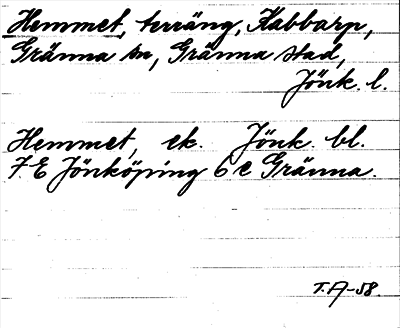 Hemmet, terräng, Kabbarp,
Gränna sn, Gränna stad,
Jönk. l.
Hemmet, ek. Jönk. bl.
7. E Jönköping 6 e Gränna.
T.A-58.